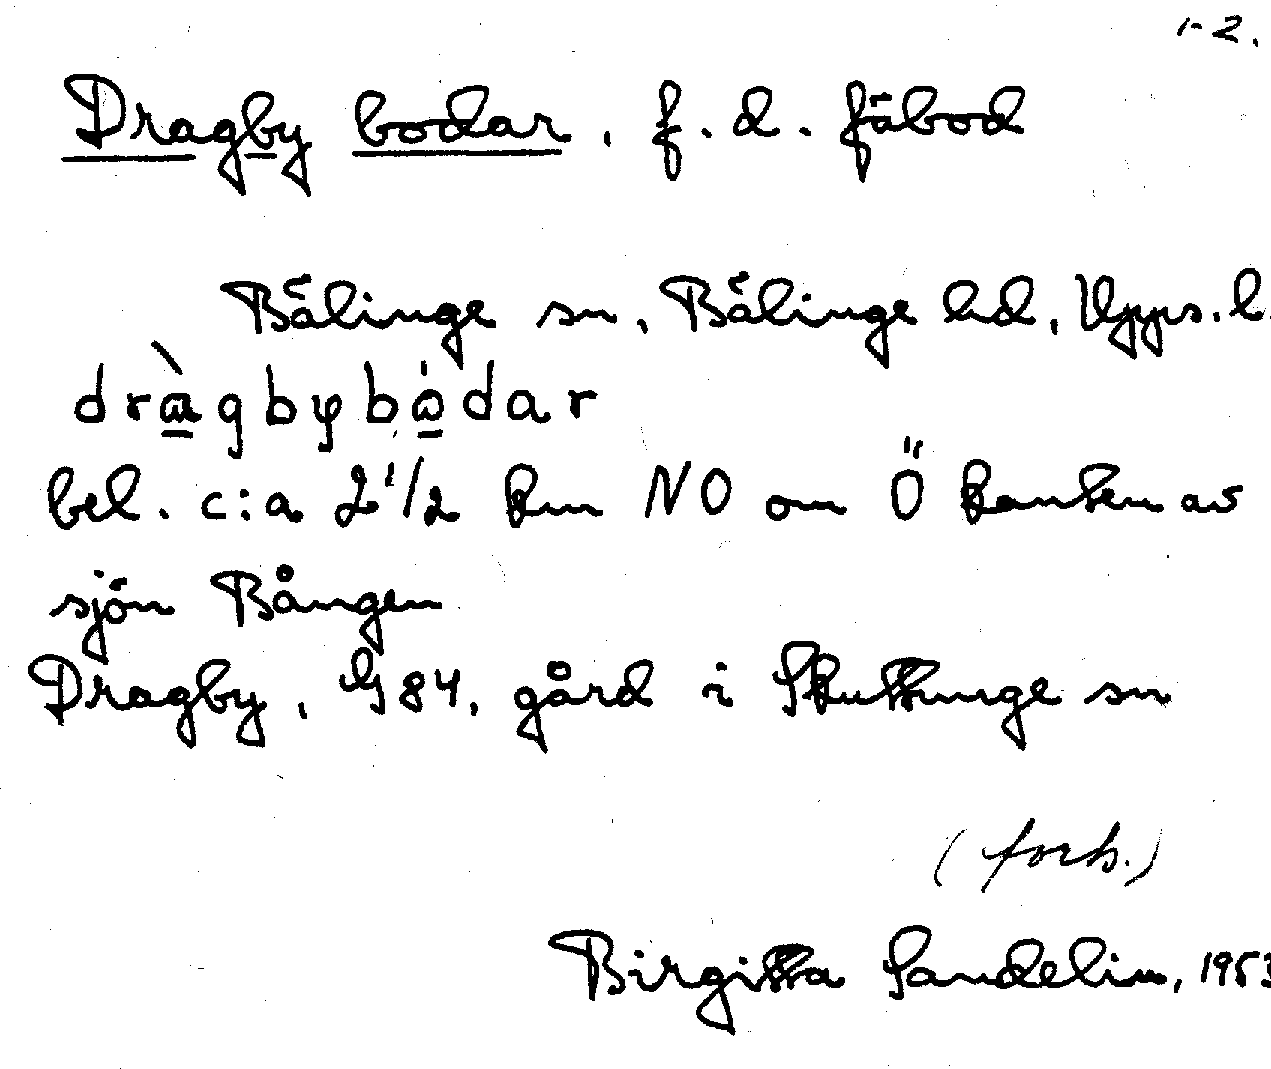 1-2.
Dragby bodar, f. d. fäbod
Bälinge sn, Bälinge hd, Upps. l.
bel. c:a 2 1/2 km NO om Ö kanten av
sjön Bången
Dragby, G84, gård i Skuttunge sn
(forts.)
Birgitta Sandelin, 1953